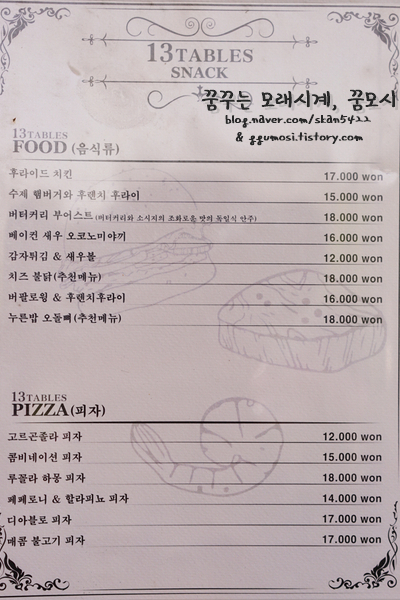 13TABLES
SNACK
꿈꾸는 모래시계, 꿈모시
blog.naver.com/skan5422
& ggumosi.tistory.com
13TABLES
FOOD (음식류)
후라이드 치킨 17.000 won
수제 햄버거와 후렌치 후라이 15.000 won
버터커리 부어스트 (버터커리와 소시지의 조화로운 맛의 독일식 안주) 18.000 won
베이컨 새우 오코노미야끼 16.000 won
감자튀김 & 새우볼 12.000 won
치즈 불닭(추천메뉴) 18.000 won
버팔로윙 & 후렌치후라이 16.000 won
누른밥 오돌뼈(추천메뉴) 18.000 won
13TABLES
PIZZA(피자)
고르곤졸라 피자 12.000 won
콤비네이션 피자 15.000 won
루꼴라 하몽 피자 18.000 won
페페로니 & 할라피뇨 피자 14.000 won
디아블로 피자 17.000 won
매콤 불고기 피자 17.000 won